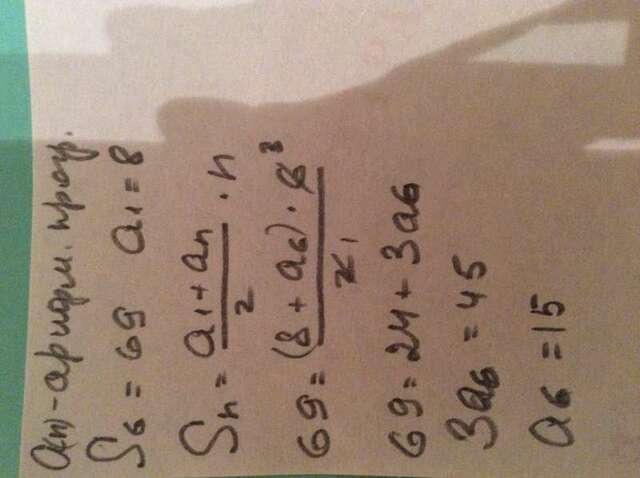 an-арифм. прогр.
S₆ = 69 a₁ = 8
Sₙ = (a₁ + aₙ)/2 · n
69 = (8 + a₆) · 6³/2₁
69 = 24 + 3a₆
3a₆ = 45
a₆ = 15